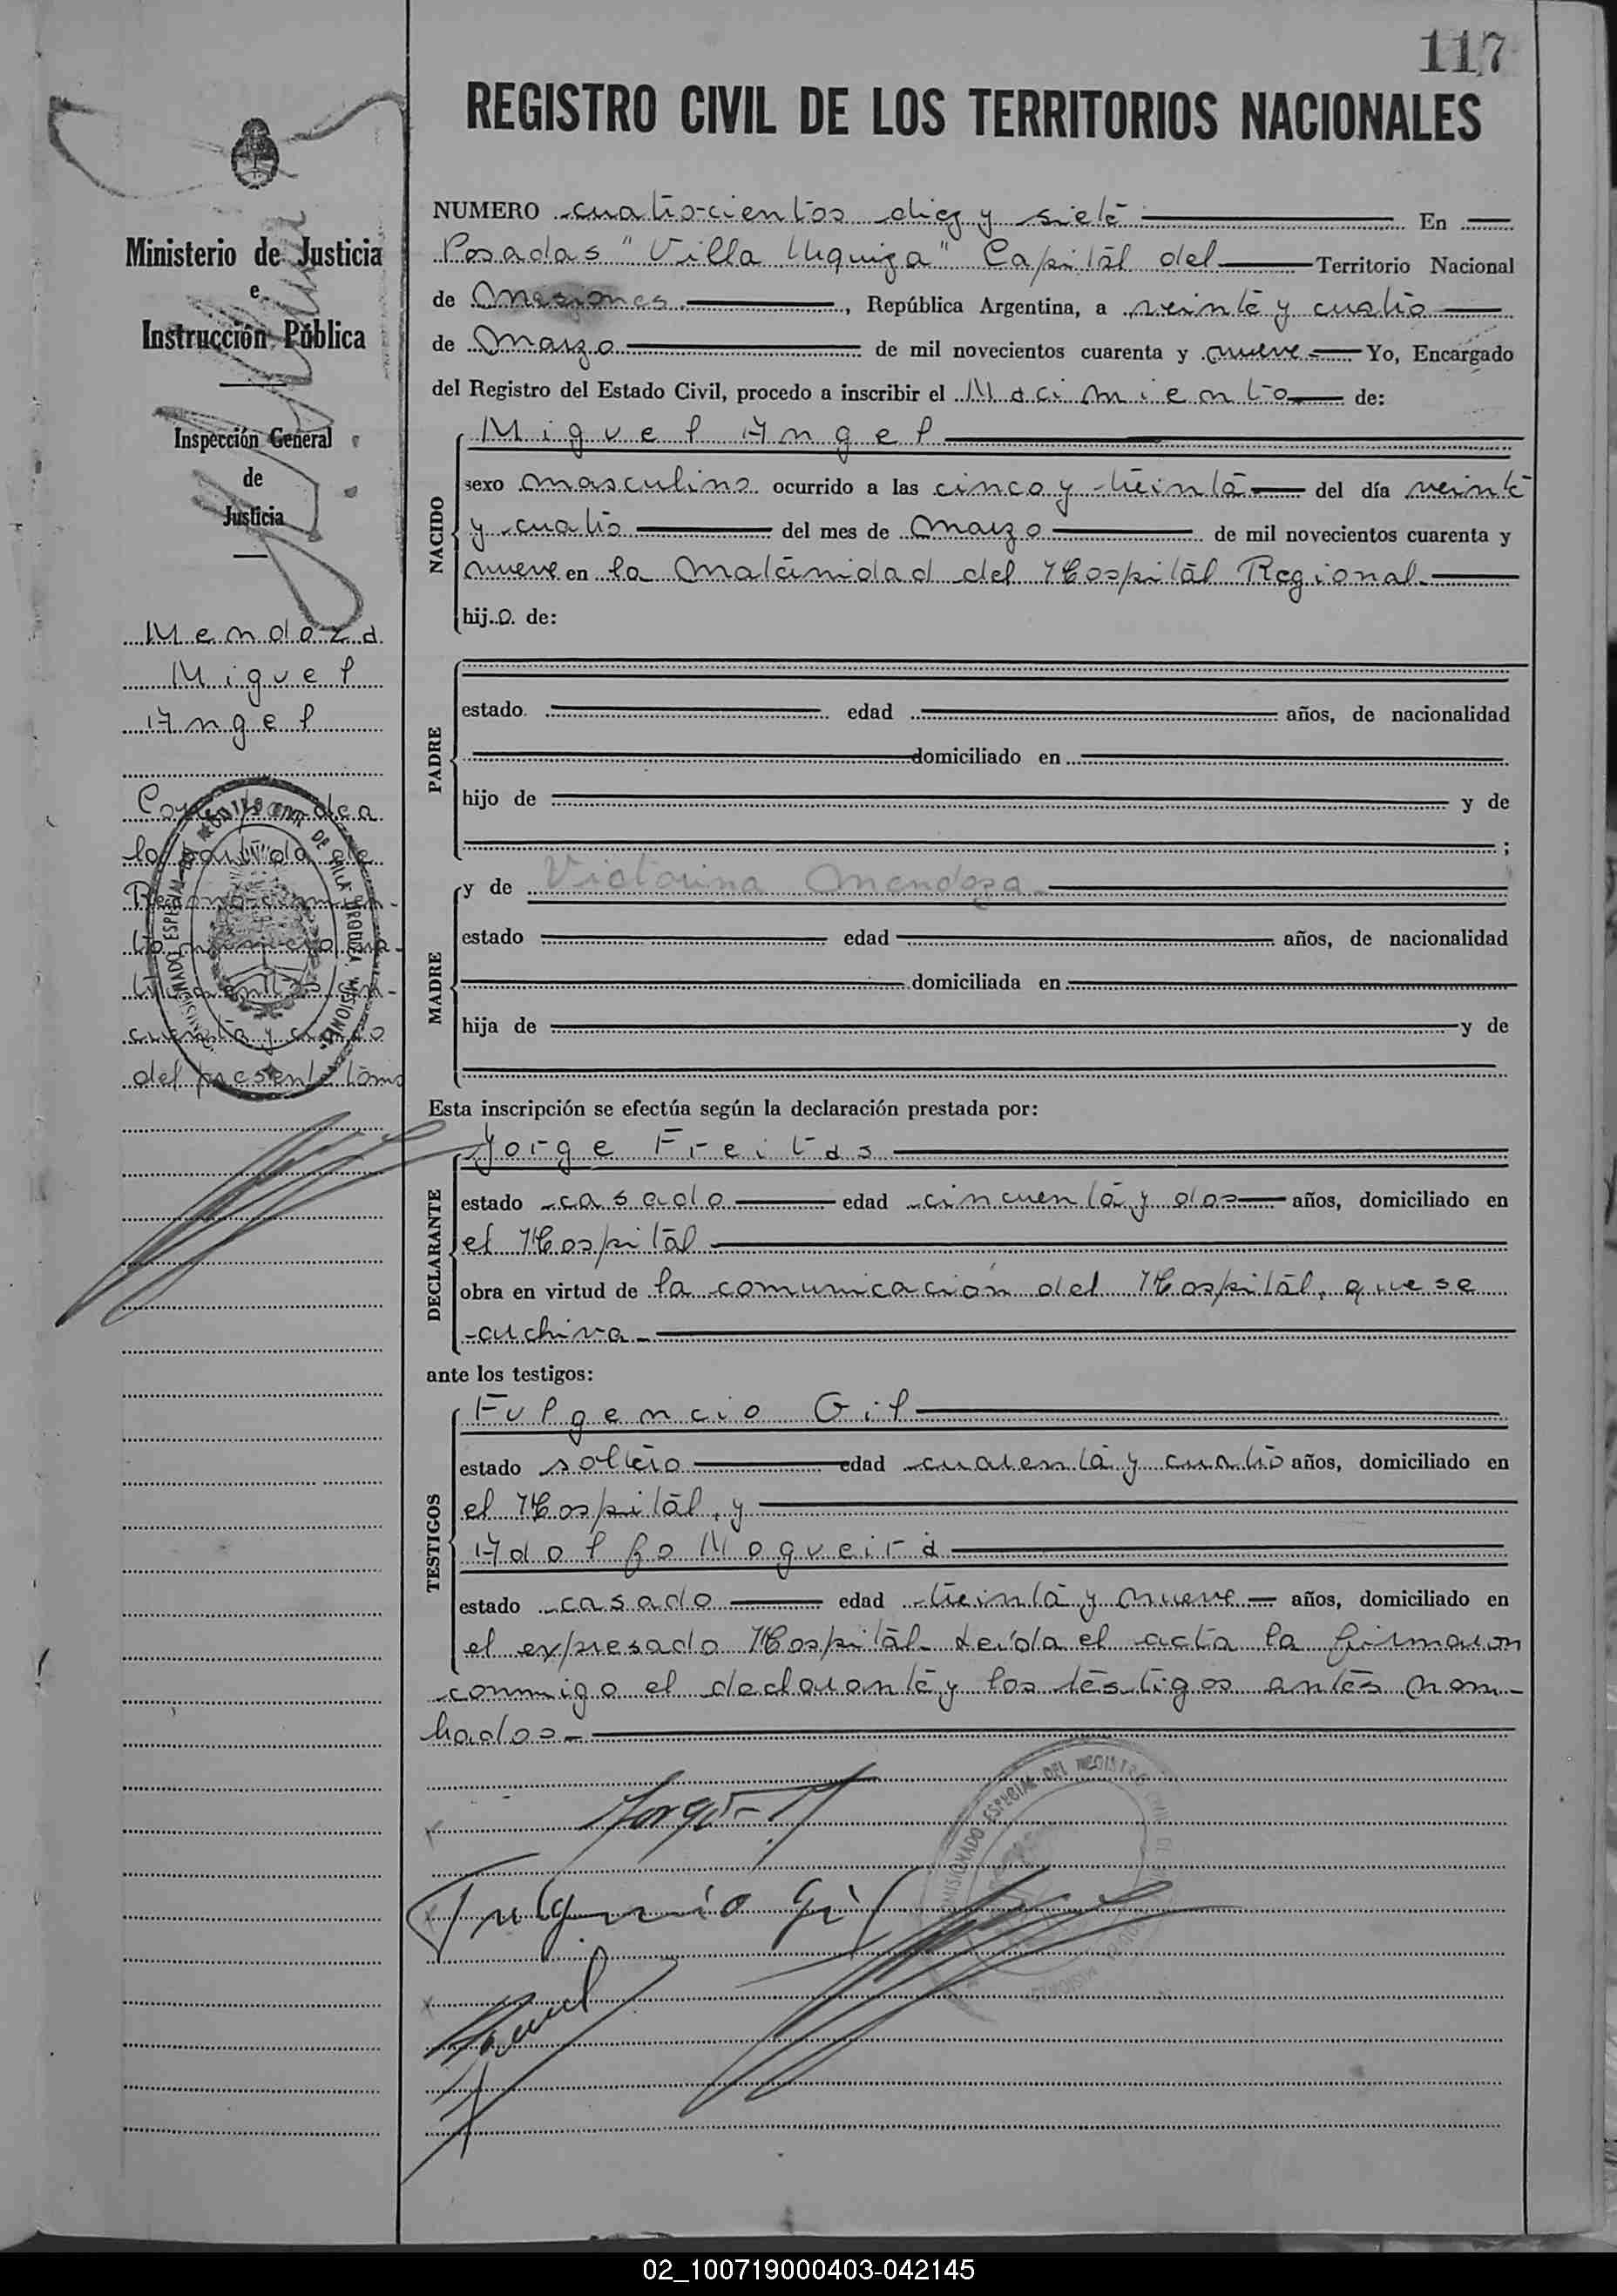 117
REGISTRO CIVIL DE LOS TERRITORIOS NACIONALES
Ministerio de Justicia
e
Instrucción Pública
Inspección General
de
Justicia
Mendoza
Miguel
Angel
la partida de
del presente tomo
COMISIONADO ESPECIAL DEL REGISTRO CIVIL DE VILLA URQUIZA, MISIONES
NUMERO cuatrocientos diez y siete En
Posadas "Villa Urquiza" Capital del Territorio Nacional
de Misiones, República Argentina, a veinte y cuatro
de Marzo de mil novecientos cuarenta y nueve Yo, Encargado
del Registro del Estado Civil, procedo a inscribir el Nacimiento de:
NACIDO
Miguel Angel
sexo masculino ocurrido a las cinco y treinta del día veinte
y cuatro del mes de Marzo de mil novecientos cuarenta y
nueve en la Maternidad del Hospital Regional
hijo de:
PADRE
estado edad años, de nacionalidad
domiciliado en
hijo de y de
;
MADRE
y de Victorina Mendoza
estado edad años, de nacionalidad
domiciliada en
hija de y de
Esta inscripción se efectúa según la declaración prestada por:
DECLARANTE
Jorge Freitas
estado casado edad cincuenta y dos años, domiciliado en
el Hospital
obra en virtud de la comunicación del Hospital, que se
archiva
ante los testigos:
TESTIGOS
Fulgencio Gil
estado soltero edad cuarenta y cuatro años, domiciliado en
el Hospital, y
Adolfo Nogueira
estado casado edad treinta y nueve años, domiciliado en
el expresado Hospital. Leída el acta la firmaron
conmigo el declarante y los testigos antes nom-
brados-
Fulgencio Gil
02_100719000403-042145